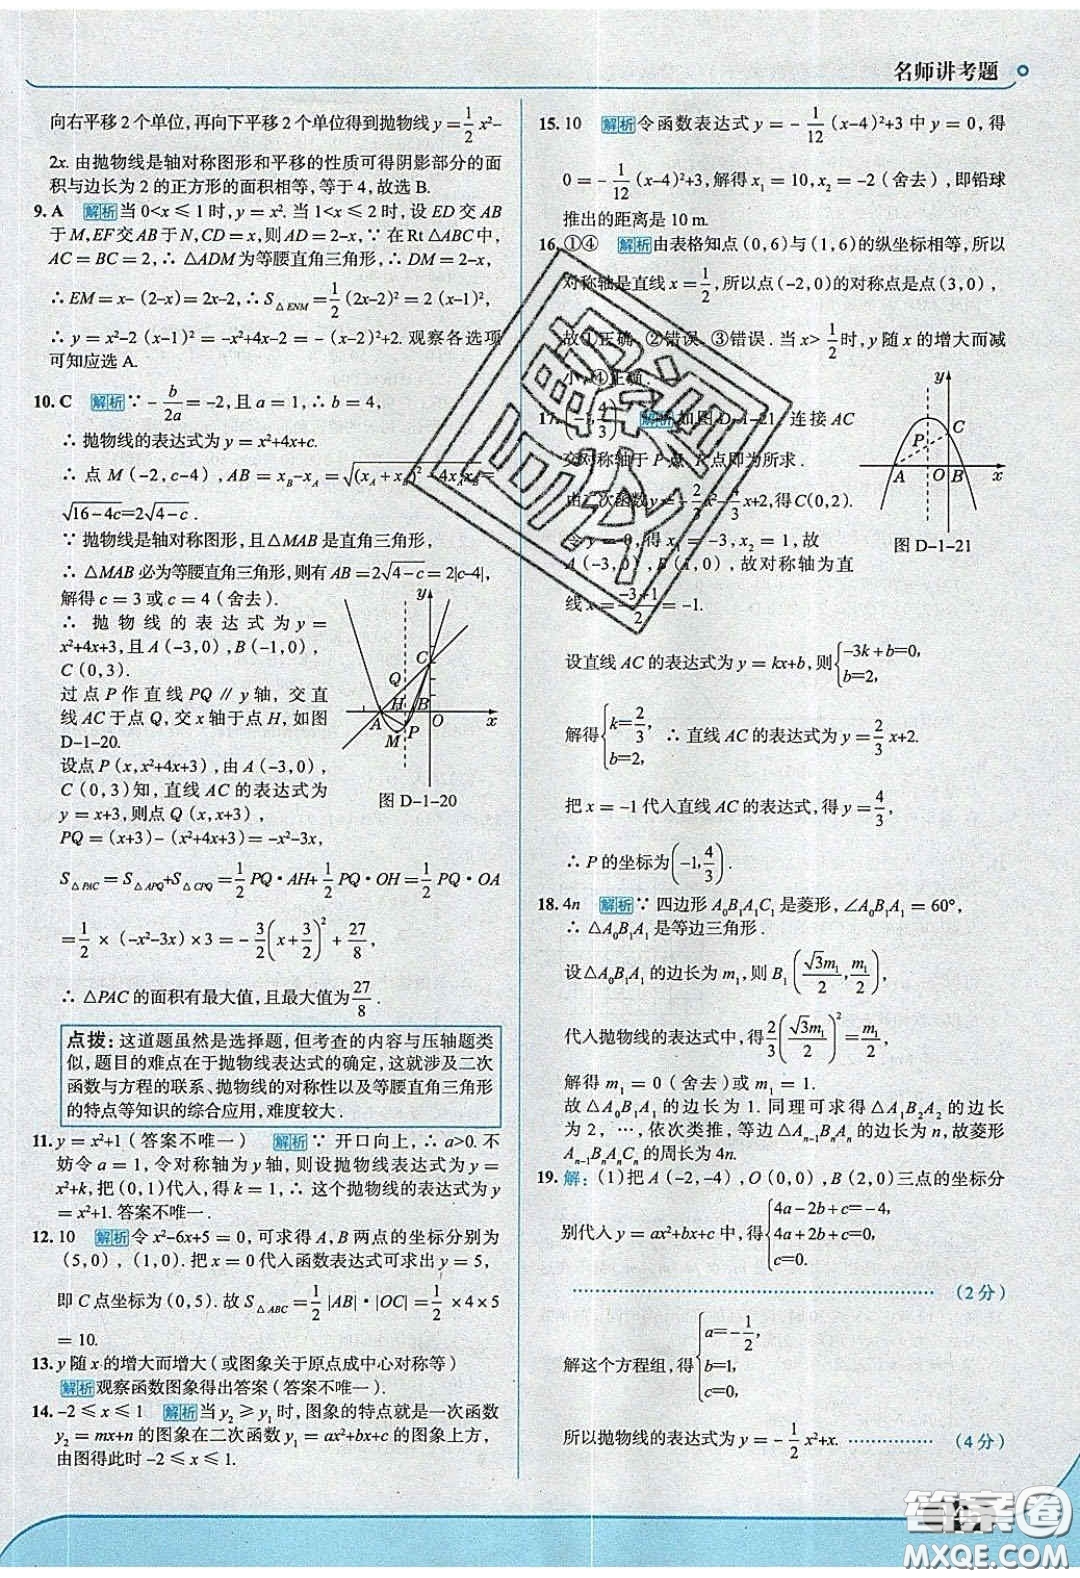 名师讲考题
向右平移2个单位,再向下平移2个单位得到抛物线y=1/2x²-
2x. 由抛物线是轴对称图形和平移的性质可得阴影部分的面
积与边长为2的正方形的面积相等,等于4,故选B.
9. A 解析 当0<x≤1时,y=x². 当1<x≤2时,设ED交AB
于M,EF交AB于N,CD=x,则AD=2-x,∵在Rt△ABC中,
AC=BC=2,∴△ADM为等腰直角三角形,∴DM=2-x,
∴EM=x-(2-x)=2x-2,∴S△ENM=1/2(2x-2)²=2(x-1)²,
∴y=x²-2(x-1)²=-x²+4x-2=-(x-2)²+2. 观察各选项
可知应选A.
10. C 解析 ∵-b/2a=-2,且a=1,∴b=4,
∴抛物线的表达式为y=x²+4x+c.
∴点M(-2,c-4),AB=x_B-x_A=√((x_A+x_B)²-4x_Ax_B)=
√(16-4c)=2√(4-c).
∵抛物线是轴对称图形,且△MAB是直角三角形,
∴△MAB必为等腰直角三角形,则有AB=2√(4-c)=2|c-4|,
解得c=3或c=4(舍去).
∴抛物线的表达式为y=
x²+4x+3,且A(-3,0),B(-1,0),
C(0,3).
过点P作直线PQ∥y轴,交直
线AC于点Q,交x轴于点H,如图
D-1-20.
设点P(x,x²+4x+3),由A(-3,0),
C(0,3)知,直线AC的表达式为
y=x+3,则点Q(x,x+3),
PQ=(x+3)-(x²+4x+3)=-x²-3x,
y
C
Q
H
B
A
O
x
M
P
图 D-1-20
S△PAC=S△APQ+S△CPQ=1/2PQ·AH+1/2PQ·OH=1/2PQ·OA
=1/2×(-x²-3x)×3=-3/2(x+3/2)²+27/8,
∴△PAC的面积有最大值,且最大值为27/8.
点拨:这道题虽然是选择题,但考查的内容与压轴题类
似,题目的难点在于抛物线表达式的确定,这就涉及二次
函数与方程的联系、抛物线的对称性以及等腰直角三角形
的特点等知识的综合应用,难度较大.
11. y=x²+1(答案不唯一) 解析 ∵开口向上,∴a>0. 不
妨令a=1,令对称轴为y轴,则设抛物线表达式为y=
x²+k,把(0,1)代入,得k=1,∴这个抛物线的表达式为y
=x²+1. 答案不唯一.
12. 10 解析 令x²-6x+5=0,可求得A,B两点的坐标分别为
(5,0),(1,0). 把x=0代入函数表达式可求出y=5,
即C点坐标为(0,5). 故S△ABC=1/2|AB|·|OC|=1/2×4×5
=10.
13. y随x的增大而增大(或图象关于原点成中心对称等)
解析 观察函数图象得出答案(答案不唯一).
14. -2≤x≤1 解析 当y₂≥y₁时,图象的特点就是一次函数
y₂=mx+n的图象在二次函数y₁=ax²+bx+c的图象上方,
由图得此时-2≤x≤1.
15. 10 解析 令函数表达式y=-1/12(x-4)²+3中y=0,得
0=-1/12(x-4)²+3,解得x₁=10,x₂=-2(舍去),即铅球
推出的距离是10 m.
16. ①④ 解析 由表格知点(0,6)与(1,6)的纵坐标相等,所以
对称轴是直线x=1/2,所以点(-2,0)的对称点是点(3,0),
故①正确,②错误,③错误. 当x>1/2时,y随x的增大而减
小,④正确.
17. (-1,4/3) 解析 如图D-1-21,连接AC
交对称轴于P点,P点即为所求.
由二次函数y=-2/3x²-4/3x+2,得C(0,2).
令y=0,得x₁=-3,x₂=1,故
A(-3,0),B(1,0),故对称轴为直
线x=(-3+1)/2=-1.
y
C
P
A
O
B
x
图 D-1-21
设直线AC的表达式为y=kx+b,则{-3k+b=0, b=2,
解得{k=2/3, b=2, ∴直线AC的表达式为y=2/3x+2.
把x=-1代入直线AC的表达式,得y=4/3,
∴P的坐标为(-1,4/3).
18. 4n 解析 ∵四边形A₀B₁A₁C₁是菱形,∠A₀B₁A₁=60°,
∴△A₀B₁A₁是等边三角形.
设△A₀B₁A₁的边长为m₁,则B₁(√3m₁/2,m₁/2),
代入抛物线式中,得2/3(√3m₁/2)²=m₁/2,
解得m₁=0(舍去)或m₁=1.
故△A₀B₁A₁的边长为1. 同理可求得△A₁B₂A₂的边长
为2,…,依次类推,等边△Aₙ₋₁BₙAₙ的边长为n,故菱形
Aₙ₋₁BₙAₙCₙ的周长为4n.
19. 解:(1)把A(-2,-4),O(0,0),B(2,0)三点的坐标分
别代入y=ax²+bx+c中,得{4a-2b+c=-4, 4a+2b+c=0, c=0.
(2分)
解这个方程组,得{a=-1/2, b=1, c=0.
所以抛物线的表达式为y=-1/2x²+x. (4分)
答案卷
MXQE.COM